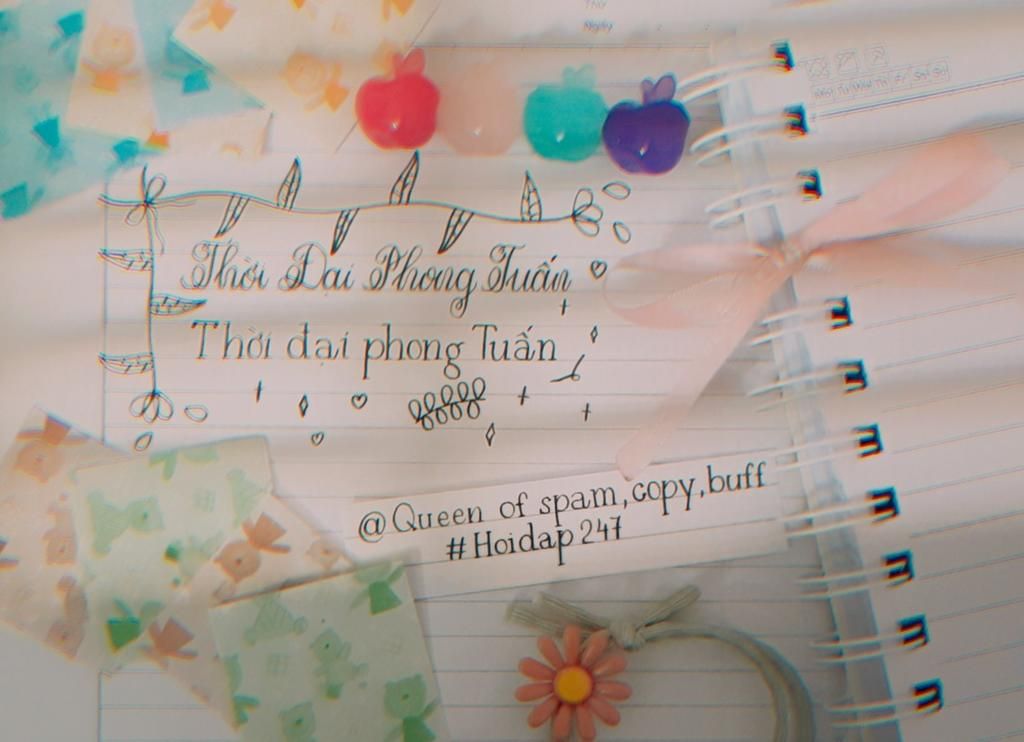 Thứ
Ngày
Thời Đại Phong Tuấn
Thời đại phong Tuấn
@Queen of spam,copy,buff
#Hoidap247